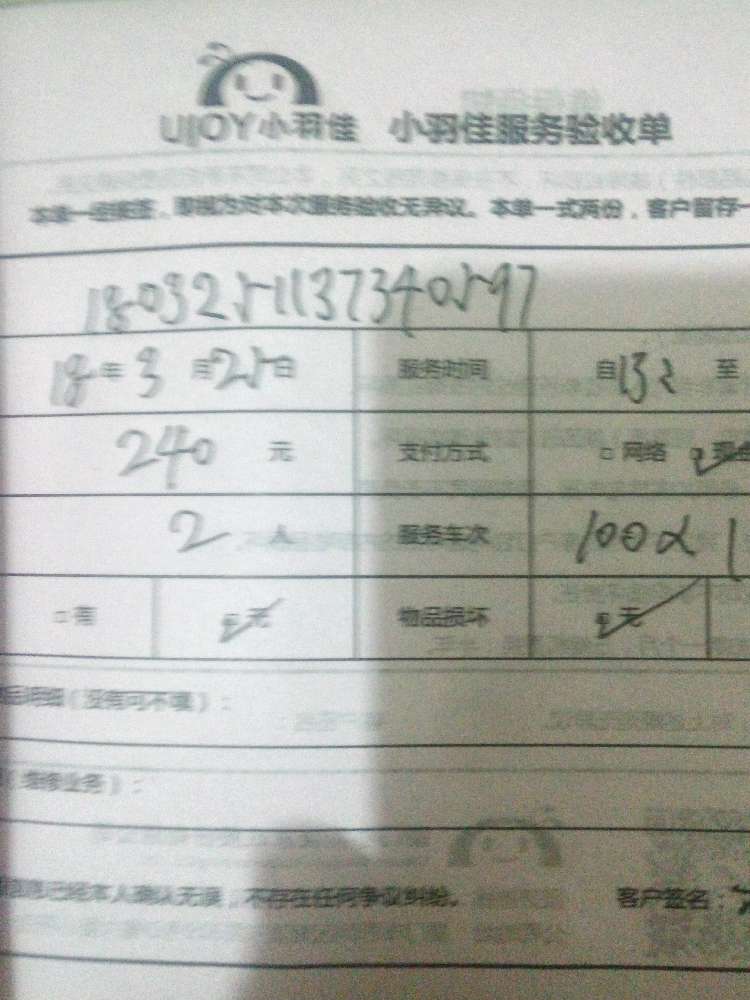 UJOY小羽佳 小羽佳服务验收单
本单一经签签，即视为对本次服务验收无异议。本单一式两份，客户留存一
1803251137340597
18年3月25日 服务时间 自13: 至
240 元 支付方式 □网络 现金
2 人 服务车次 100 1
□有 无 物品损坏 无
明细（没有可不填）：
（维修业务）：
信息已经本人确认无误，不存在任何争议纠纷。 客户签名：